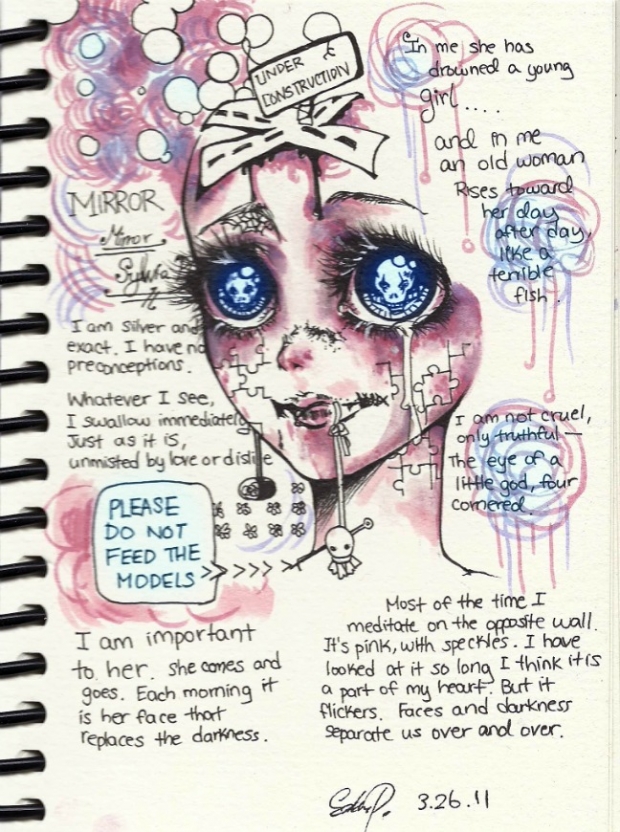 UNDER
CONSTRUCTION
In me she has
drowned a young
girl ....
and in me
an old woman
Rises toward
her day
after day,
like a
terrible
fish.
MIRROR
Mirror
Sylvia
I am silver and
exact. I have no
preconceptions.
Whatever I see,
I swallow immediately
Just as it is,
unmisted by love or dislike
I am not cruel,
only truthful—
The eye of a
little god, four
cornered.
PLEASE
DO NOT
FEED THE
MODELS
I am important
to her. She comes and
goes. Each morning it
is her face that
replaces the darkness.
Most of the time I
meditate on the opposite wall.
It's pink, with speckles. I have
looked at it so long I think it is
a part of my heart. But it
flickers. Faces and darkness
separate us over and over.
3.26.11